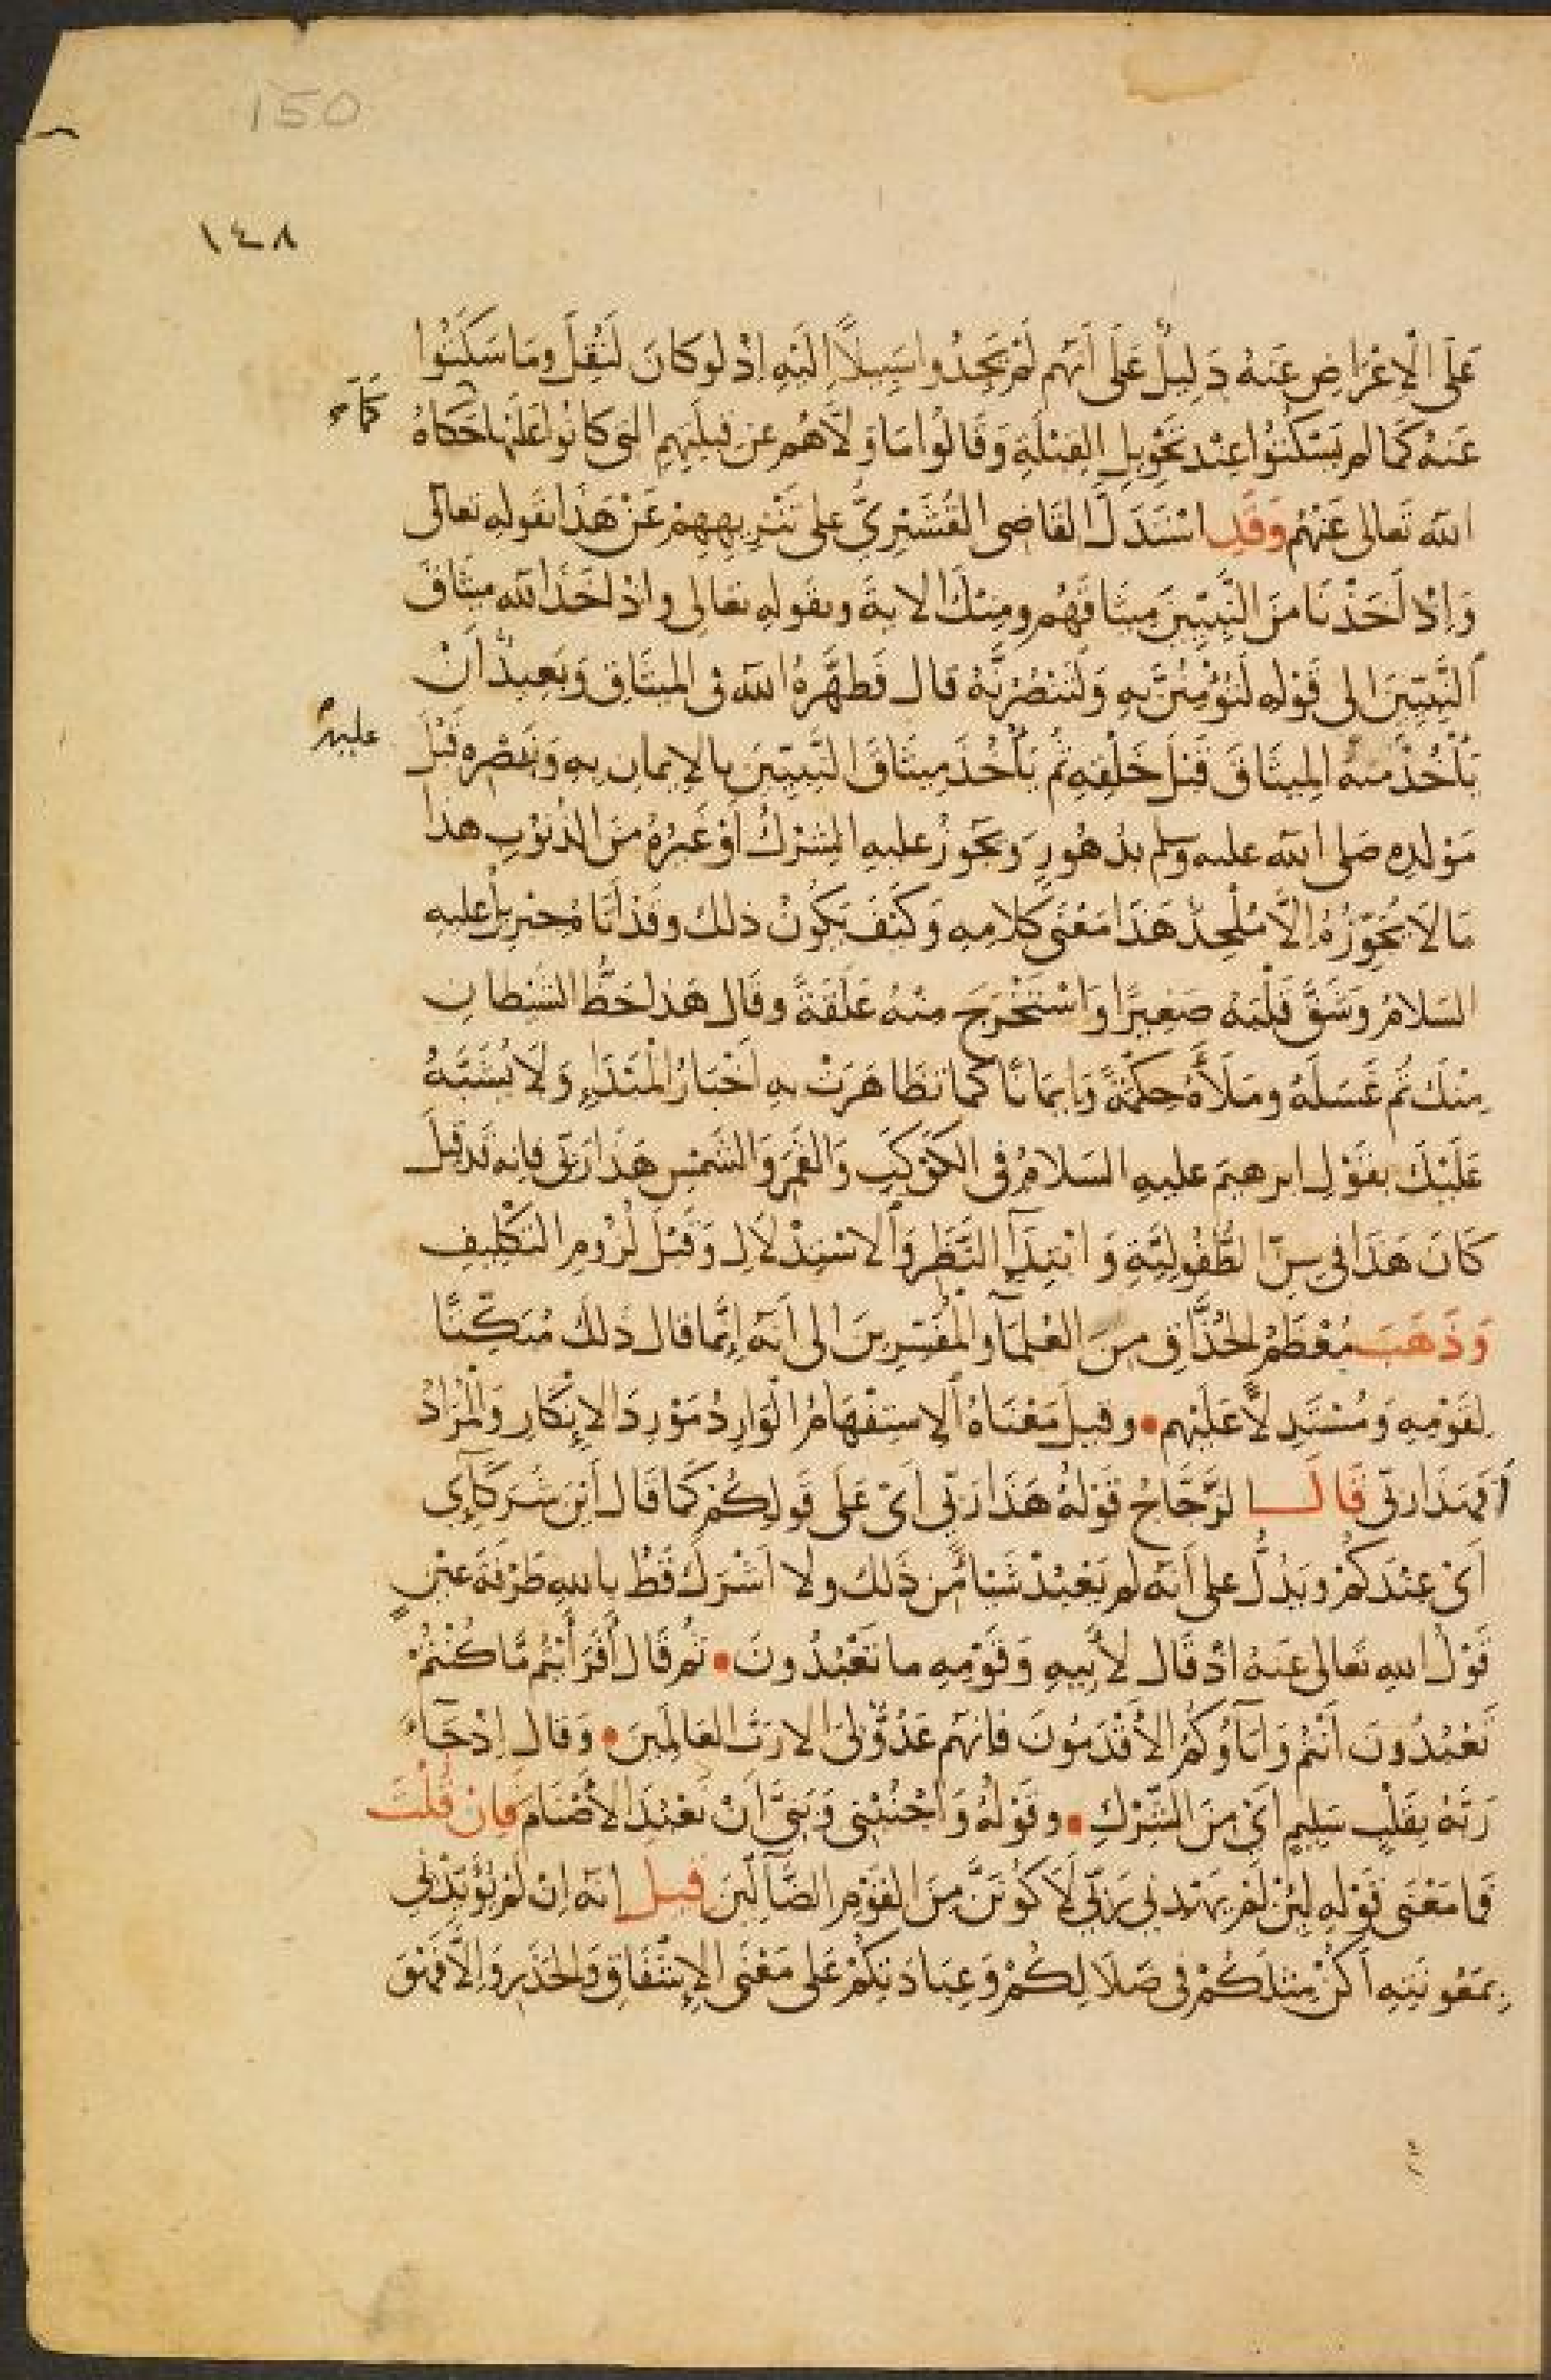 150
١٤٨
عَلَى الْإِعْرَاضِ عَنهُ دَلِيلٌ عَلَى أَنَّهُم لَمْ يَجِدُوا سَبِيلًا إِلَيْهِ إِذْ لَو كَانَ لَنُقِلَ وَمَا سَكَتُوا
عَنهُ كَمَا لم يَسْكُتُوا عِنْدَ تَحْوِيلِ القِبْلَةِ وَقَالُوا مَا وَلَّاهُم عن قِبلَتِهِمِ التي كانُوا عَلَيْها كَمَا حَكَاهُ
الله تَعالى عَنْهُمْ وَقَدِ اسْتَدَلَّ القَاضِى القُشَيْرِيُّ على تَنْزِيهِهِمْ عَنْ هَذَا بقَولِهِ تعالى
وَإِذْ أَخَذْنَا مِنَ النَّبِيِّينَ مِيثَاقَهُم ومِنكَ الآية وبقوله تعالى واذْ اَخَذَ الله مِيثَاقَ
النَّبِيِّينَ الى قَوْلِهِ لَتُؤْمِنُنَّ بِهِ وَلَتَنْصُرُنَّهُ قال فَطَهَّرَهُ الله فى المِيثَاقِ وَبَعِيدٌ أَنْ
يَأْخُذَ مِنهُ المِيثَاقَ قَبْلَ خَلْقِهِ ثُم يَأْخُذَ مِيثَاقَ النَّبِيِّينَ بالإيمانِ بِهِ وَنَصْرِهِ قَبْلَ
عليهم
مَوْلِدِهِ صَلى الله عليه وسلم بدُهُورٍ وَيَجُوزُ عليهِ الشِّرْكُ أَوْ غَيْرُهُ مِنَ الذُّنُوبِ هذا
مَا لَا يُجَوِّزُهُ الَّا مُلْحِدٌ هَذَا مَعْنَى كَلامِهِ وَكَيْفَ يَكُونُ ذلك وقَدْ أَتَاهُ جبْرِيلُ عليهِ
السَلامُ وَشَقَّ قَلْبَهُ صَغِيرًا وَاسْتَخْرَجَ مِنْهُ عَلَقَةً وقَالَ هذا حَظُّ الشَّيْطانِ
مِنْكَ ثُم غَسَلَهُ وَمَلَأَهُ حِكْمَةً وَإِيمَانًا كَمَا تَظَاهَرَتْ بِهِ أَخْبَارُ الْمَبْدَإِ وَلَا يُشَبَّهُ
عَلَيْكَ بِقَوْلِ ابرهيمَ عليهِ السَلامُ فى الكَوْكَبِ وَالقَمَرِ وَالشَّمْسِ هَذَا رَبِّى فإنه قد قيلَ
كَانَ هَذَا في سِنِّ الطُّفُولِيَّةِ وَابْتِدَآءِ النَّظَرِ وَالاسْتِدْلَالِ وَقَبْلَ لُزُومِ التَّكْلِيفِ
وَذَهَبَ مُعْظَمُ الحُذَّاقِ مِنَ العُلَمَآءِ والمُفَسِّرِينَ الى أَنَّه إِنَّما قال ذَلكَ مُبَكِّتًا
لِقَوْمِهِ وَمُسْتَدِلًّا عَلَيْهِم وقيلَ مَعْنَاهُ الاسْتِفْهَامُ الوَارِدُ مَوْرِدَ الإِنْكَارِ وَالْمُرَادُ
أَفَهَذَا ربّى قَالَ الزَّجَّاجُ قَوْلُهُ هَذَا رَبِّى أَىْ عَلَى قَولِكُمْ كَمَا قَالَ أَيْنَ شُرَكَآئِى
أَىْ عِنْدَكُمْ ويَدُلُّ على أَنَّه لم يَعْبُدْ شَيْئًا مِّن ذَلك ولا أَشْرَكَ قَطُّ باللهِ طَرْفَةَ عَيْنٍ
قَوْلُ اللهِ تعالى عَنهُ اذْ قَالَ لأَبِيهِ وَقَوْمِهِ ما تَعْبُدُونَ ثُمَّ قَالَ أَفَرَأَيْتُم مَّا كُنْتُمْ
تَعْبُدُونَ أَنْتُمْ وَآبَآؤُكُمُ الأَقْدَمُونَ فإِنَّهُم عَدُوٌّ لِى الا رَبَّ العَالَمِينَ وَقال إِذْ جَآءَ
رَبَّهُ بِقَلْبٍ سَلِيمٍ أَيْ مِنَ الشِّرْكِ وقَوْلُهُ وَاجْنُبْنِى وَبَنِىَّ أَنْ نَعْبُدَ الأَصْنَامَ فَإِنْ قُلْتَ
فَمَا مَعْنَى قَوْلِهِ لَئِنْ لَمْ يَهْدِنِي رَبِّي لَأَكُونَنَّ مِنَ القَوْمِ الضَّآلِّينَ قيل إِنه إِنْ لَمْ يُؤَيِّدْنِي
بِمَعُونَتِهِ أَكُنْ مِثْلَكُمْ فى ضَلَالِكُمْ وَعِبَادَتِكُمْ عَلَى مَعْنَى الإِشْفَاقِ وَالحَذَرِ وَإِلَّا فَهْوَ